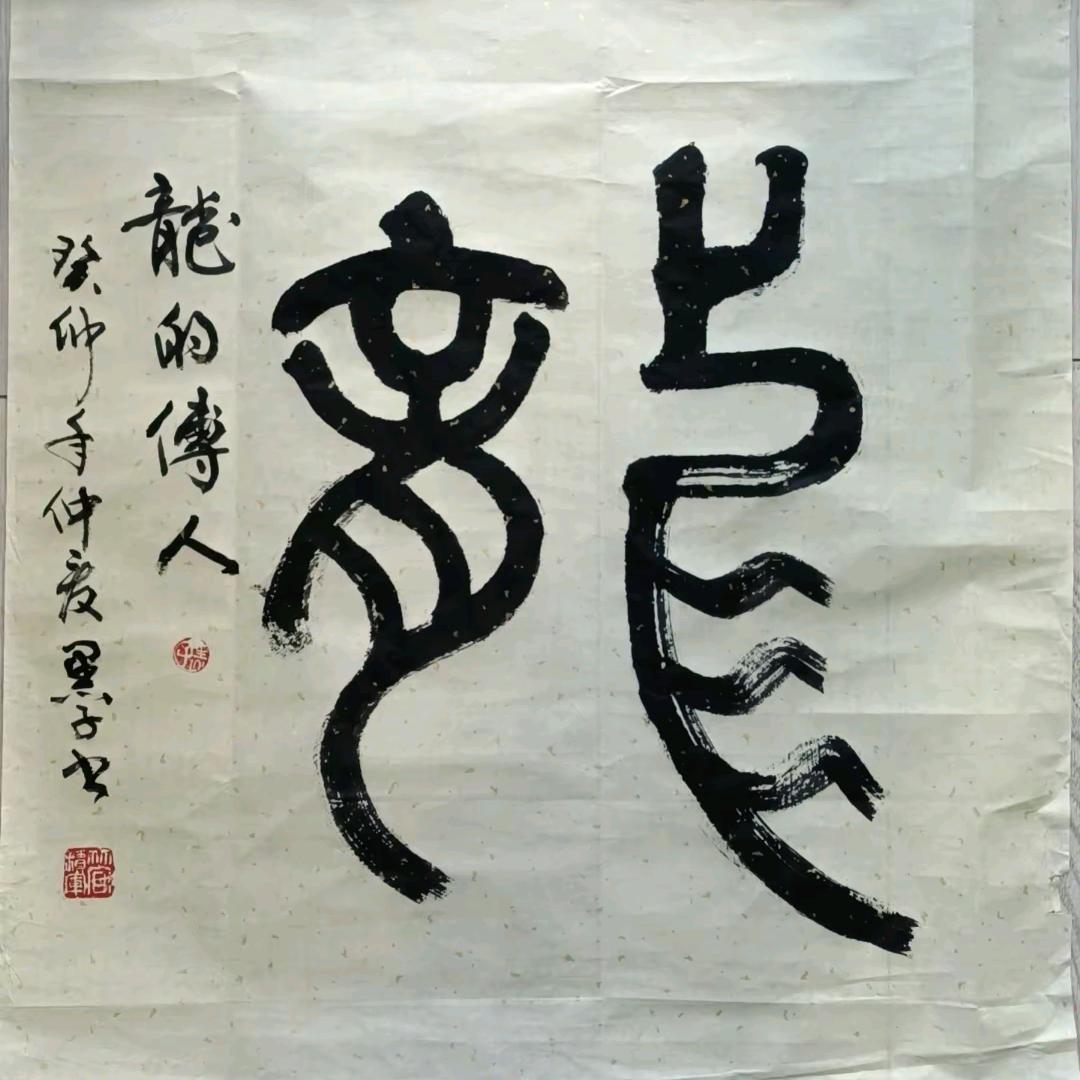 龍
龍的傳人
癸卯年仲夏墨子书